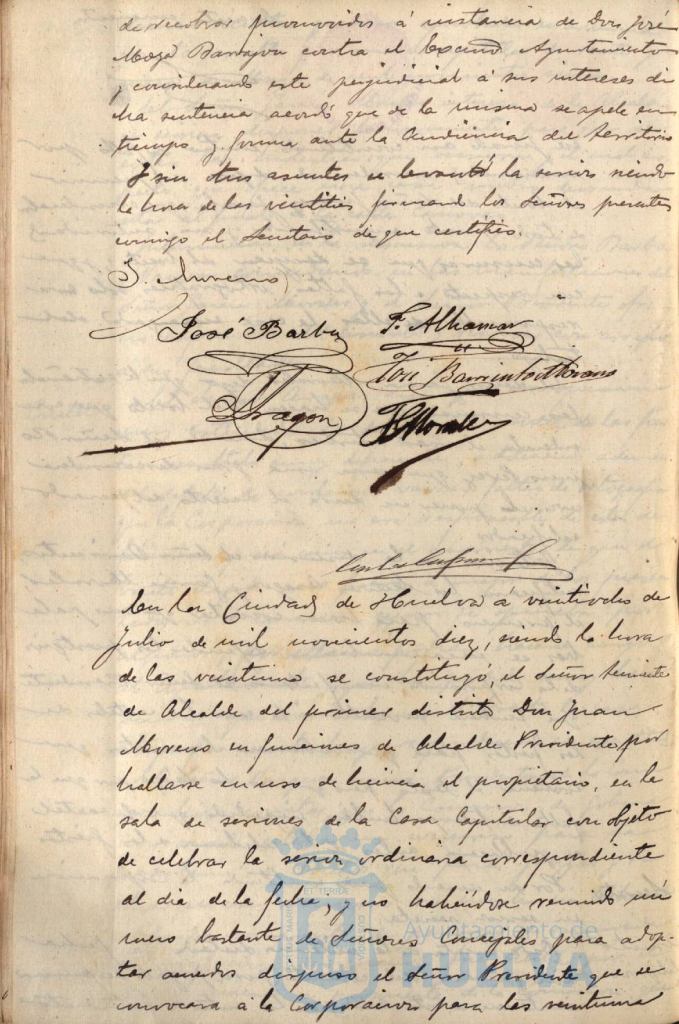 de recobrar promovidos á instancia de Don José
Mozo Barrajon contra el Excmo Ayuntamiento
y considerando este perjudicial á sus intereses di
cha sentencia acordó que de la misma se apele en
tiempo y forma ante la Audiencia del Territorio
Y sin otros asuntos se levantó la sesion siendo
la hora de las veintitres firmando los Señores presentes
conmigo el Secretario de que certifico.
J. Moreno
José Barba F. Alhamar
José Barrientos Morano
Aragon Morales
En la Ciudad de Huelva á veintidos de
Julio de mil novecientos diez, siendo la hora
de las veintiuna se constituyó, el Señor teniente
de Alcalde del primer distrito Don Juan
Moreno en funciones de Alcalde Presidente por
hallarse en uso de licencia el propietario, en la
sala de sesiones de la Casa Capitular con objeto
de celebrar la sesion ordinaria correspondiente
al dia de la fecha; y no habiendose reunido nú
mero bastante de Señores Concejales para adop-
tar acuerdos dispuso el Señor Presidente que se
convocara á la Corporacion para las veintiuna
Ayuntamiento de
HUELVA